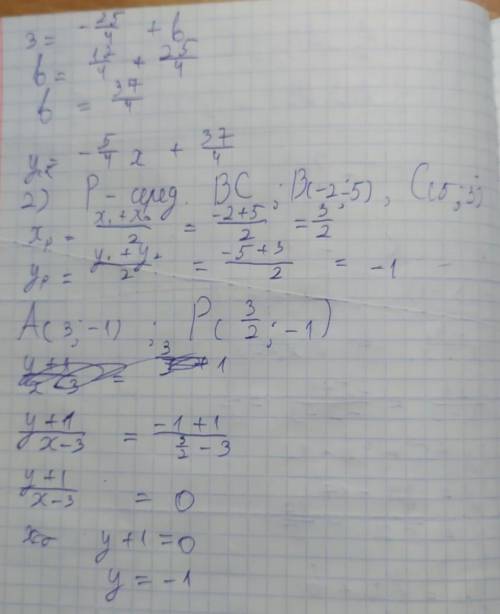 3 = -25/4 + b
b = 12/4 + 25/4
b = 37/4
y = -5/4 x + 37/4
2) P - серед. BC ; B(-2;-5), C(5;3)
xₚ = x₁+x₂/2 = -2+5/2 = 3/2
yₚ = y₁+y₂/2 = -5+3/2 = -1
A(3;-1) ; P(3/2;-1)
y+1/x-3 = -1+1/3/2-3
y+1/x-3 = 0
y+1=0
y = -1